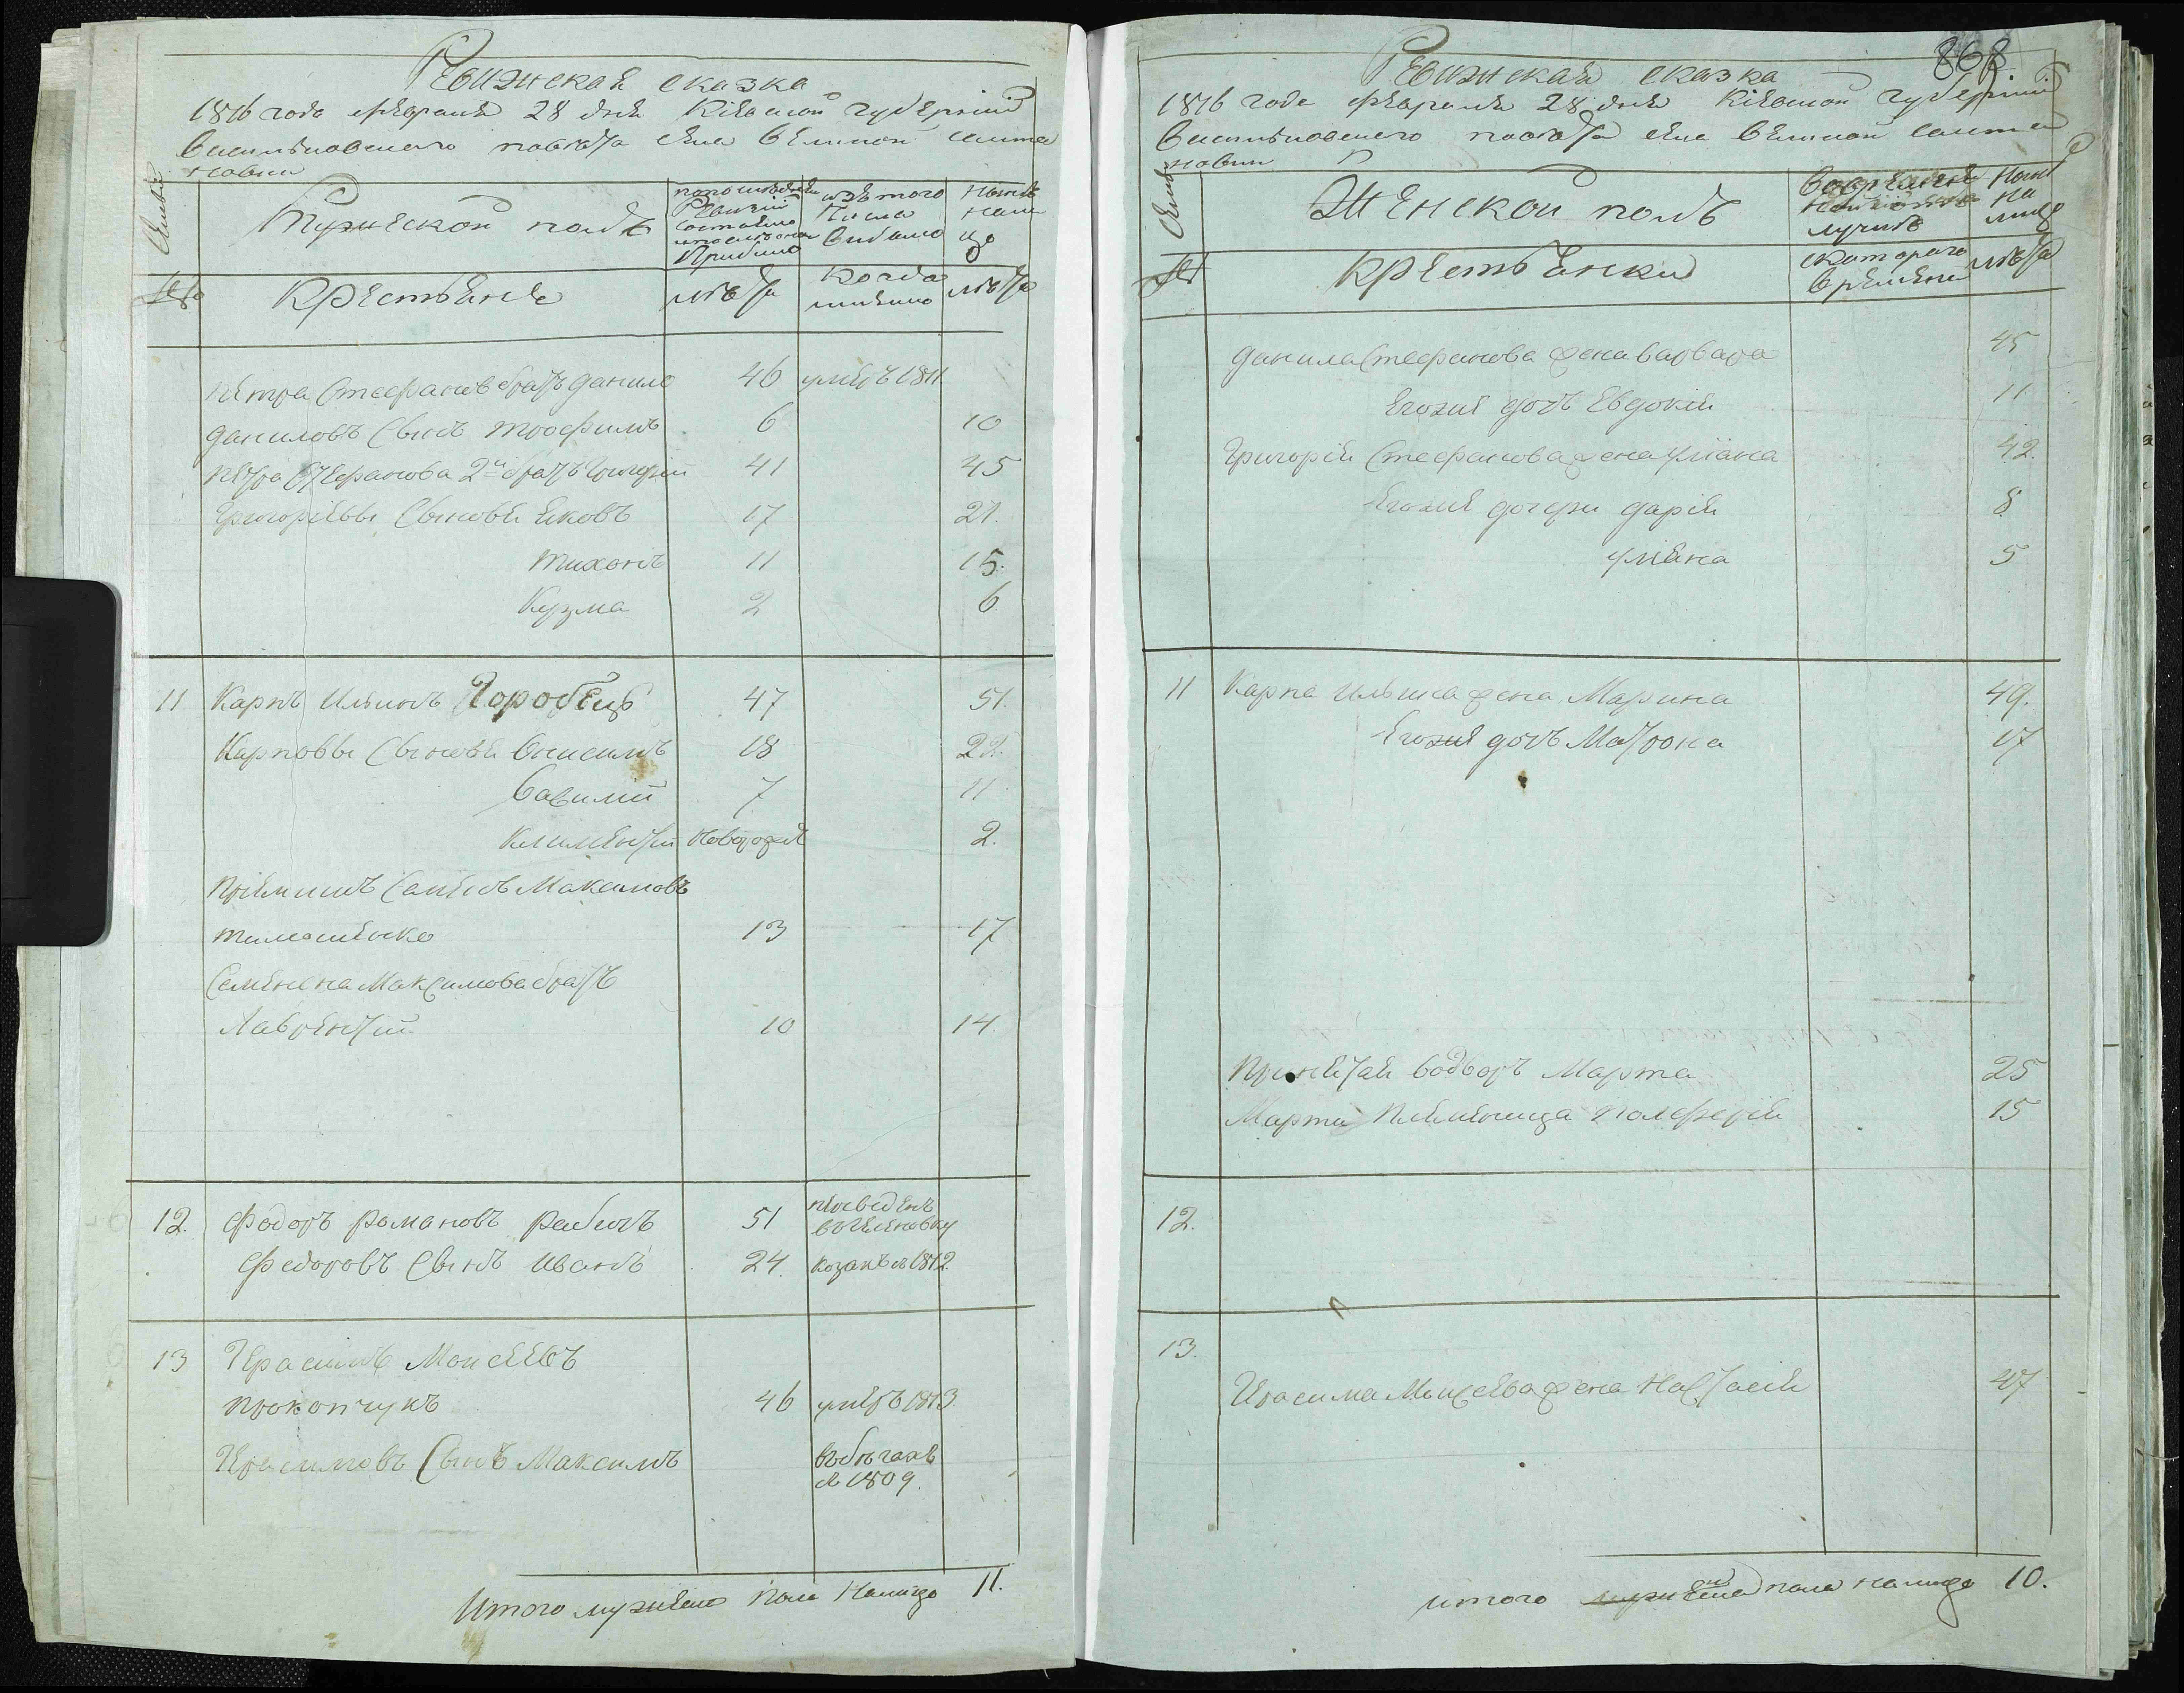 Ревижская сказка
1816 года февраля 28 дня Кіевской губерніи
Васильковского повѣта села Великой Солта
новки
Семьи
Мужеской полъ
по последней Ревизіи состояло и после оной Прибыло
изъ того Числа выбыло
Нынѣ на ли цо
№
Крестьяне
лѣта
Когда именно
лѣта
Петра Стефанов братъ данило 46 умеръ 1811.
даниловъ Сынъ трофимъ 6 10
Петра Стефанова 2й братъ Григорій 41 45
Григоріевы Сыновья яковъ 17 21.
тихонъ 11 15.
Кузма 2 6.
11 Карпъ Ильинъ Горобецъ 47 51.
Карповы Сыновья Онисимъ 18 22.
Василій 7 11
Климентій Новорожде 2.
Пріймышъ Семенъ Максимовъ
тимошенко 13 17
Семена Максимова братъ
Лаврентій 10 14.
12. Федоръ романовъ рабинъ 51 переведенъ в
Федоровъ Сынъ иванъ 24. Козакъ в 1812.
13 Герасимъ Моисеевъ
прокопчукъ 46 умеръ 1813
Герасимовъ Сынъ Максимъ въ бегахъ
с 1809.
Итого мужеска пола Налицо 11.
868
Ревижская сказка
1816 года февраля 28 дня Кіевской губерніи
Васильковского повѣта села Великой Солта
новки
Семьи
Женской полъ
Во временной отлучкѣ
Нынѣ на лицо
№
Крестьянки
с котораго времени
лѣта
данила Стефанова жена варвара 45
Егожъ дочь Евдокія 11
Григорія Стефанова жена уліана 42.
Егожъ дочери дарія 8
уліяна 5
11 Карпа Ильина жена Марина 49.
Егожъ дочь Матрона 17
Принятая во дворъ Марта 25
Марты Племяница 15
12.
13.
Герасима Моисеева жена Настасія 47
итого женска пола налицо 10.